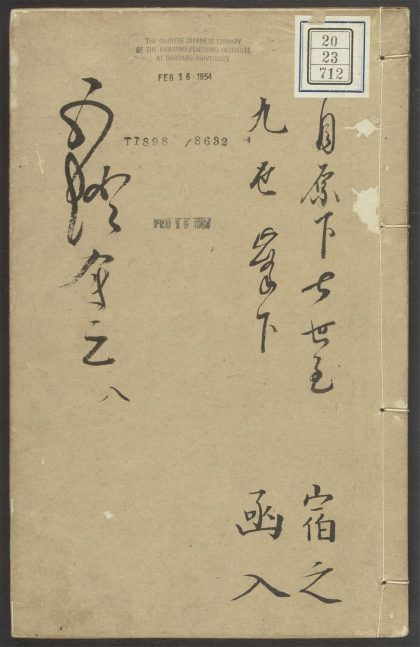 THE CHINESE-JAPANESE LIBRARY
OF THE HARVARD-YENCHING INSTITUTE
AT HARVARD UNIVERSITY
FEB 16 1954
20
23
712
T7898 / 8632
FEB 16 1954
青原下七世至
九世 峯下
宿之
函入
五燈会元 八